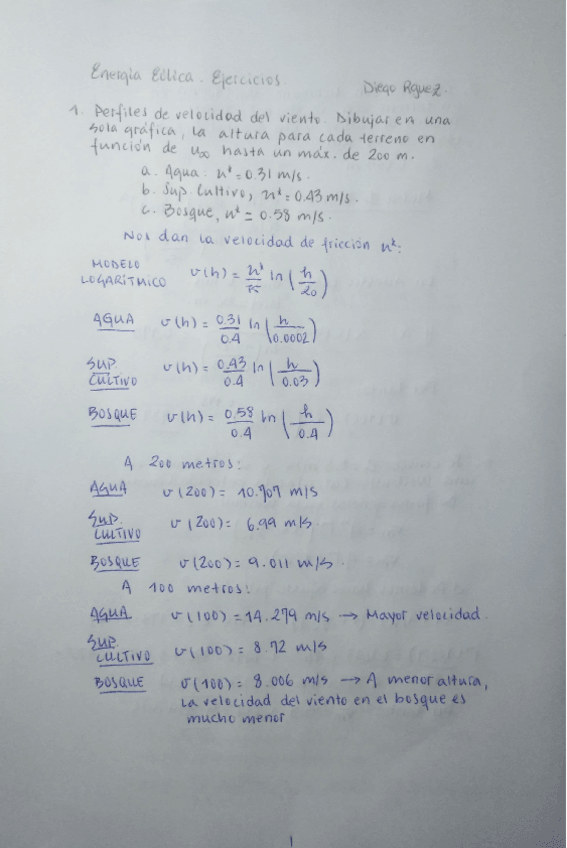 Energía Eólica. Ejercicios. Diego Rguez.
1. Perfiles de velocidad del viento. Dibujar en una
sola gráfica, la altura para cada terreno en
función de u∞ hasta un máx. de 200 m.
a. Agua: u* = 0.31 m/s.
b. Sup. Cultivo, u* = 0.43 m/s.
c. Bosque, u* = 0.58 m/s.
Nos dan la velocidad de fricción u*:
MODELO LOGARÍTMICO v(h) = u*/K ln(h/z0)
AGUA v(h) = 0.31/0.4 ln(h/0.0002)
SUP. CULTIVO v(h) = 0.43/0.4 ln(h/0.03)
BOSQUE v(h) = 0.58/0.4 ln(h/0.4)
A 200 metros:
AGUA v(200) = 10.707 m/s
SUP. CULTIVO v(200) = 6.99 m/s.
BOSQUE v(200) = 9.011 m/s.
A 100 metros:
AGUA v(100) = 14.279 m/s → Mayor velocidad.
SUP. CULTIVO v(100) = 8.72 m/s
BOSQUE v(100) = 8.006 m/s → A menor altura,
la velocidad del viento en el bosque es
mucho menor
1